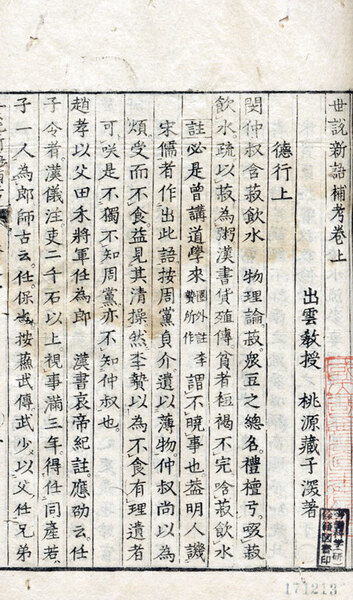 世說新語補考卷上
出雲教授 桃源藏子深著
德行上
閔仲叔含菽飲水 物理論菽衆豆之總名禮檀弓啜菽
飲水疏以菽為粥漢書貨殖傳貧者裋褐不完唅菽飲水
註必是曾講道學來圈外註李贄所作謂不曉事也蓋明人譏
宋儒者作出此語按周黨貞介遺以薄物仲叔尚以為
煩受而不食益見其清操然李贄以為不食有理遺者
可咲是不獨不知周黨亦不知仲叔也
趙孝以父田禾將軍任為郎 漢書哀帝紀註應劭云任
子令者漢儀注吏二千石以上視事滿三年得任同產若
子一人為郎師古云任保也按蘓武傳武少以父任兄弟
171213